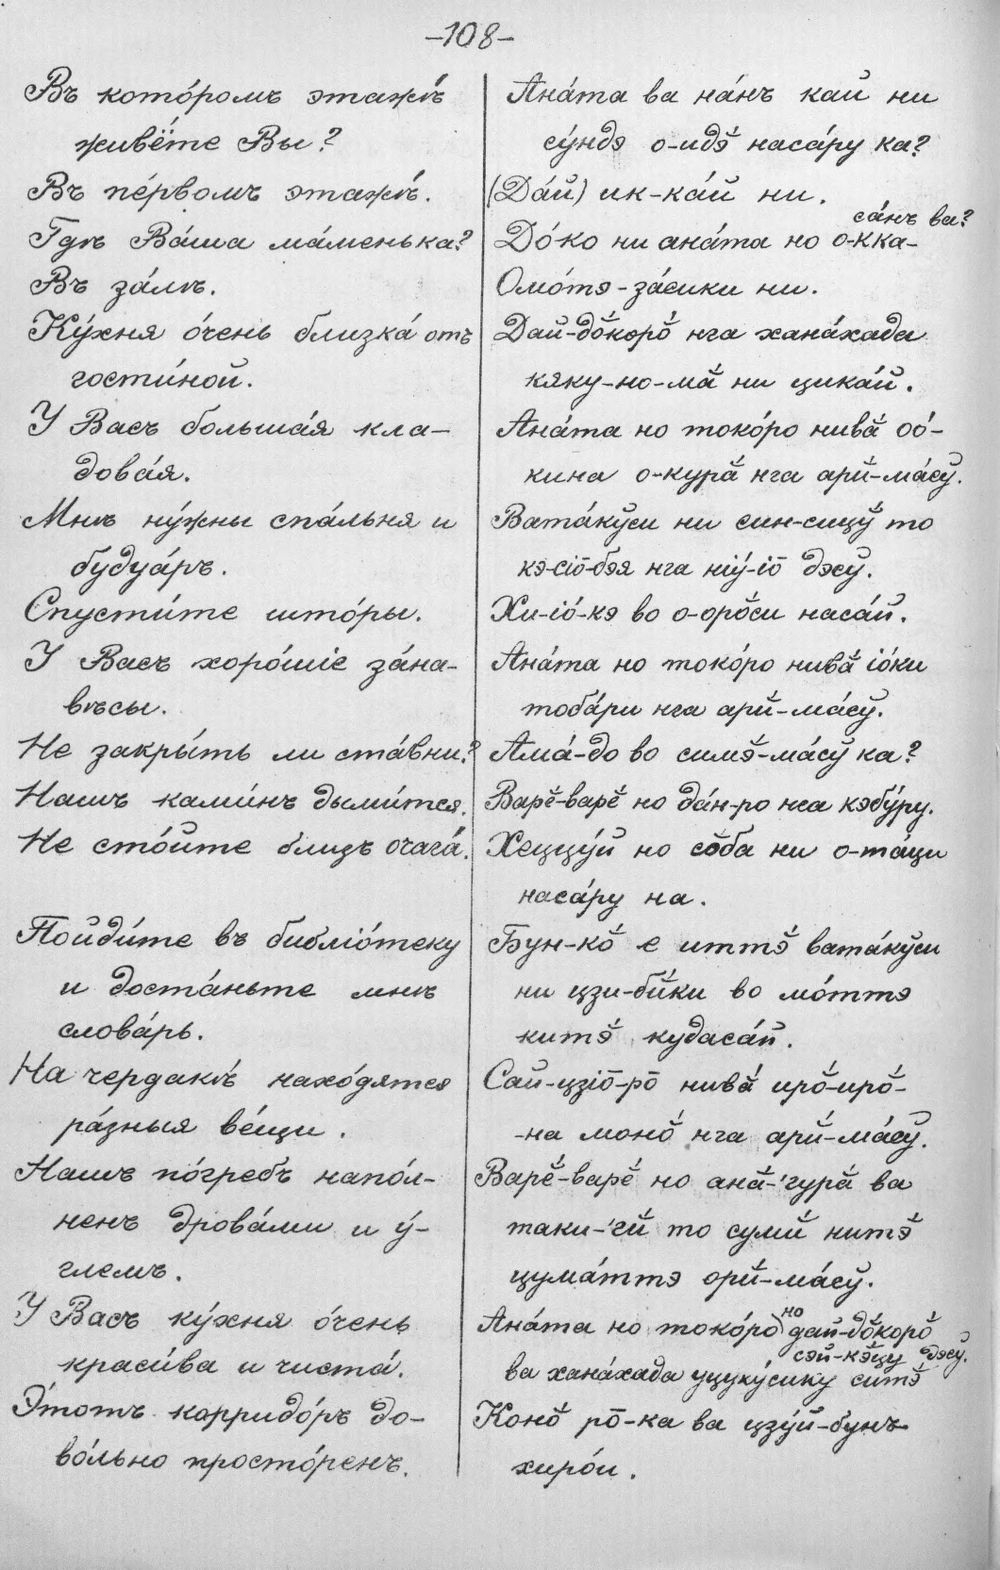 –108–
Въ кото́ромъ этажѣ́
живёте Вы?
Въ пе́рвомъ этажѣ́.
Гдѣ Ва́ша ма́менька?
Въ за́лѣ.
Ку́хня о́чень близка́ отъ
гости́ной.
У Васъ больша́я кла-
дова́я.
Мнѣ ну́жны спа́льня и
будуа́ръ.
Спусти́те што́ры.
У Васъ хоро́шіе за́на-
вѣсы.
Не закры́ть ли ста́вни?
Нашъ ками́нъ дыми́тся.
Не сто́йте близъ очага́.
Пойди́те въ библіо́теку
и доста́ньте мнѣ
слова́рь.
На чердакѣ́ нахо́дятся
ра́зныя ве́щи.
Нашъ по́гребъ напо́л-
ненъ дрова́ми и у́-
глемъ.
У Васъ ку́хня о́чень
краси́ва и чиста́.
Э́тотъ корридо́ръ до-
во́льно просто́ренъ.
Ана́та ва на́нъ кай ни
су́ндэ о-идэ̆́ наса́ру ка?
(Да́й) ик-ка́й ни.
са́нъ ва?
До́-ко ни ана́та но о-кка-
Омо́тэ-за́сики ни.
Дай-до̆́коро̆́ нга хана́хада
кяку-но-мӑ́ ни цика́й.
Ана́та но токо́ро нивӑ́ оо́-
кина о-курӑ́ нга арй́-ма́сў.
Вата́кўси ни син-сицў́ то
кэ-сіо̄-бэя нга ніу́-іо̄ дэсў.
Хи-іо́-кэ во о-оро̆́си наса́й.
Ана́та но токо́ро нивӑ́ іо́ки
тоба́ри нга арй́-ма́сў.
Ама́-до во симэ̆́-ма́сў ка?
Варӗ́-варӗ́ но да́н-ро нга кэбу́ру.
Хеццу́й но со̆́ба ни о-та́ци
наса́ру на.
Бун-ко̆́ е иттэ̆́ вата́кўси
ни цзи-бй́ки во мо́ттэ
китэ̆́ кудаса́й.
Сай-цзіо̄-ро̄ нивӑ́ иро̆́-иро̆́-
-на моно̆́ нга арй́-ма́сў.
Варӗ́-варӗ́ но анӑ́-'гурӑ́ ва
таки-'гй́ то сумй́ нитэ̆́
цума́ттэ орй́-ма́сў.
но
Ана́та но токо́ро̆ дай-до̆́коро̆
сэй-кэ̆́цу дэсў.
ва хана́хада уцуку́сику ситэ̆́
Коно̆́ ро̄-ка ва цзу́й-бунъ
хиро́и.